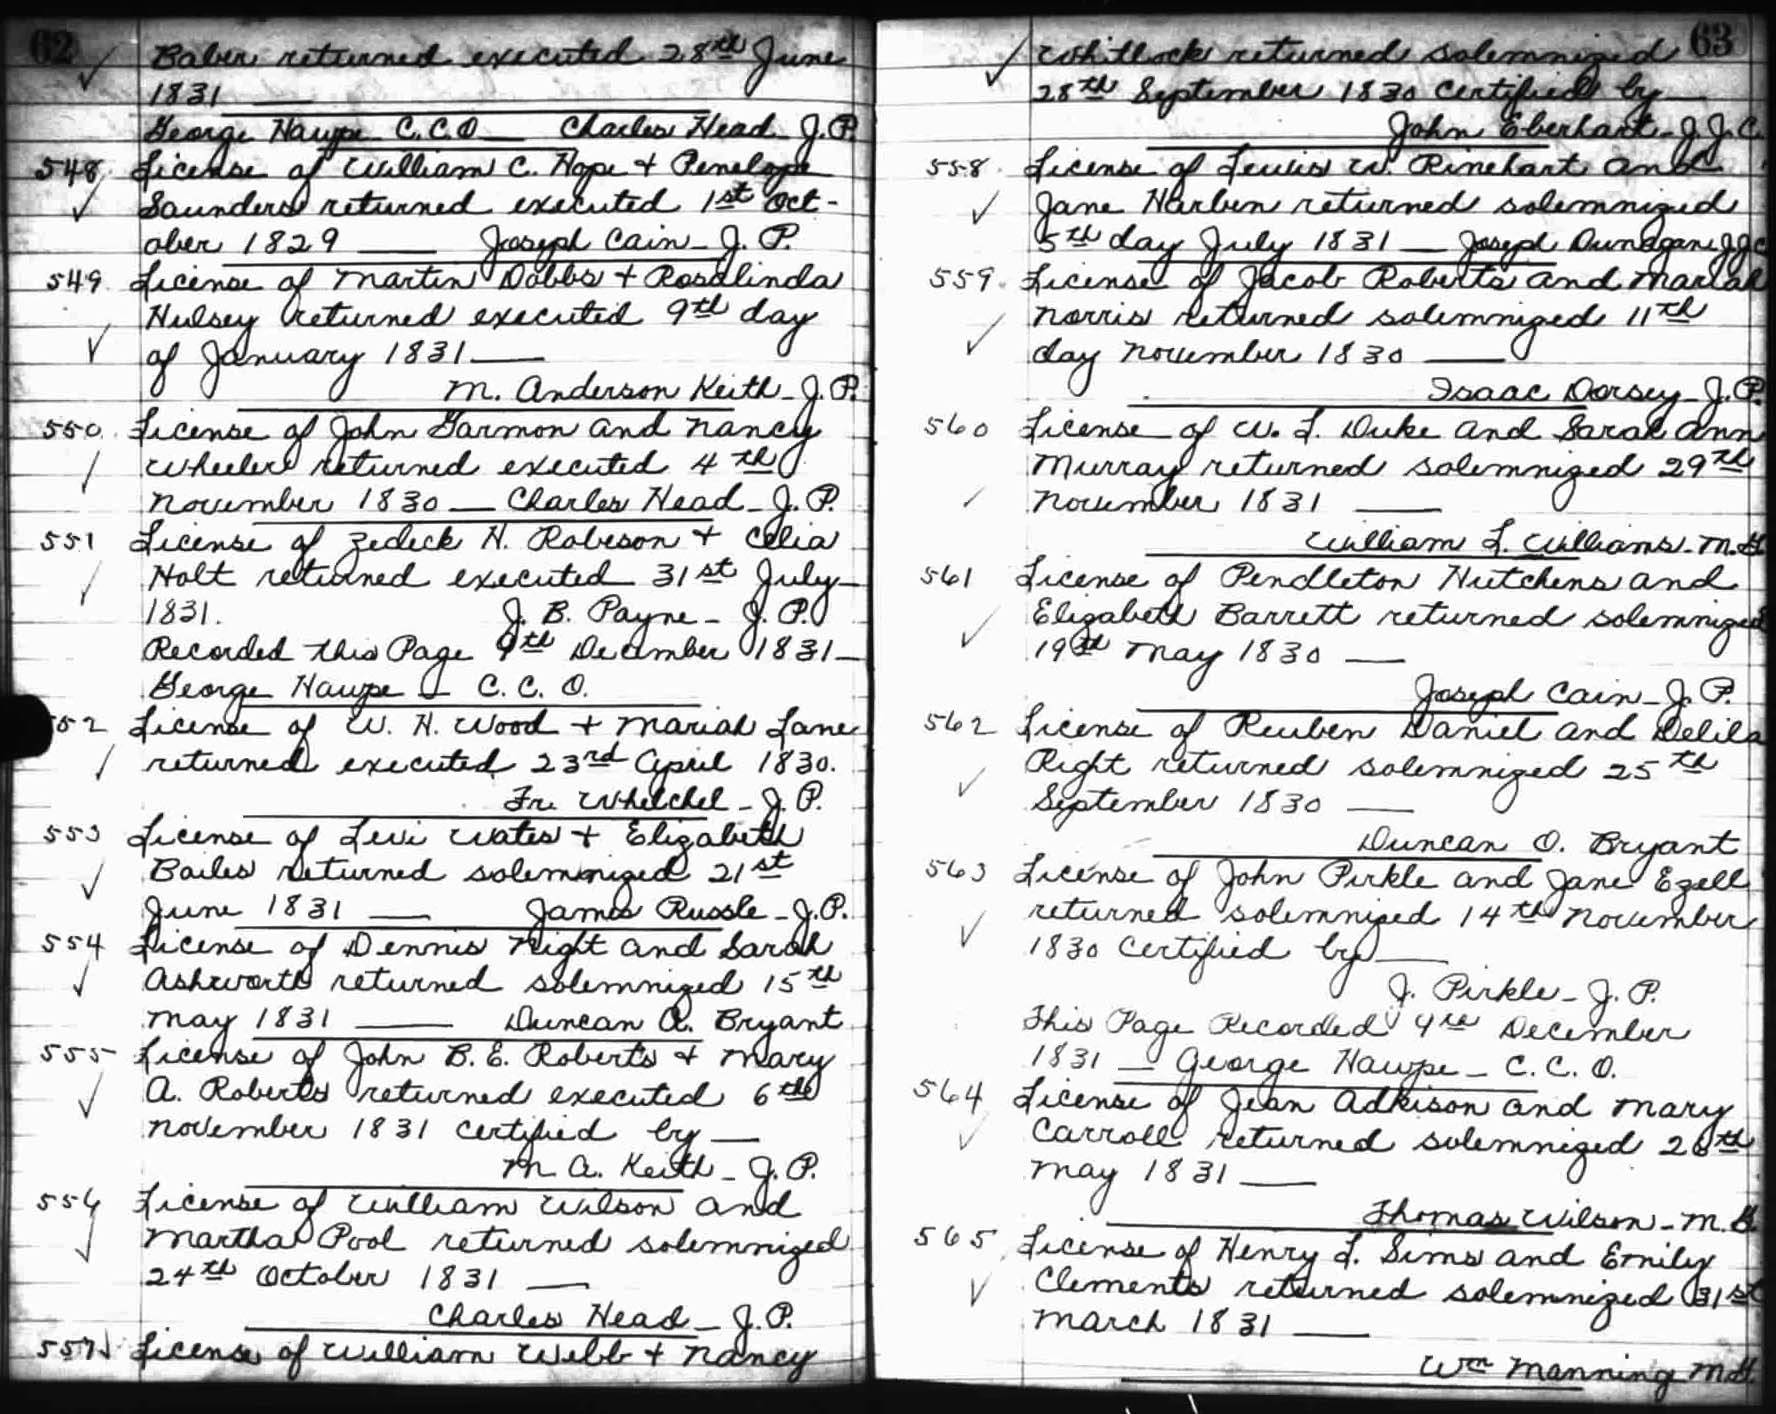 62
Baber returned executed 28th June
1831 —
George Hawpe C.C.O — Charles Head J.P.
548 License of William C. Hope + Penelope
Saunders returned executed 1st Oct-
ober 1829 — Joseph Cain - J.P.
549 License of Martin Dobbs + Rosalinda
Hulsey returned executed 9th day
of January 1831 —
M. Anderson Keith - J.P.
550 License of John Garmon and Nancy
Wheeler returned executed 4th
November 1830 — Charles Head - J.P.
551 License of Zedeck H. Robeson + Celia
Holt returned executed 31st July -
1831. J. B. Payne - J.P.
Recorded this Page 9th December 1831 -
George Hawpe - C.C.O.
552 License of W. H. Wood + Mariah Lane
returned executed 23rd April 1830.
Fr. Whelchel - J.P.
553 License of Levi Wates + Elizabeth
Bailes returned solemnized 21st
June 1831 — James Russle - J.P.
554 License of Dennis Night and Sarah
Ashworth returned solemnized 15th
May 1831 — Duncan O. Bryant
555 License of John B. E. Roberts + Mary
A. Roberts returned executed 6th
November 1831 certified by —
M A. Keith - J.P.
556 License of William Wilson and
Martha Pool returned solemnized
24th October 1831 —
Charles Head - J.P.
557 License of William Webb + Nancy
63
Whitlock returned solemnized
28th September 1830 certified by
John Eberhart - J.J.C.
558 License of Lewis W. Rinehart and
Jane Harben returned solemnized
5th day July 1831 — Joseph Dunagan J J C
559 License of Jacob Roberts and Mariah
Norris returned solemnized 11th
day November 1830 —
Isaac Dorsey - J.P.
560 License of W. L. Duke and Sarah Ann
Murray returned solemnized 29th
November 1831 —
William L. Williams - M.G
561 License of Pendleton Hutchens and
Elizabeth Barrett returned solemnized
19th May 1830 —
Joseph Cain - J.P.
562 License of Reuben Daniel and Delila
Right returned solemnized 25th
September 1830 —
Duncan O. Bryant
563 License of John Pirkle and Jane Ezell
returned solemnized 14th November
1830 certified by —
J. Pirkle - J.P.
This Page Recorded 9th December
1831 — George Hawpe - C.C.O.
564 License of Jean Adkison and Mary
Carroll returned solemnized 26th
May 1831 —
Thomas Wilson - M.G.
565 License of Henry L. Sims and Emily
Clements returned solemnized 31st
March 1831 —
Wm Manning M.G.